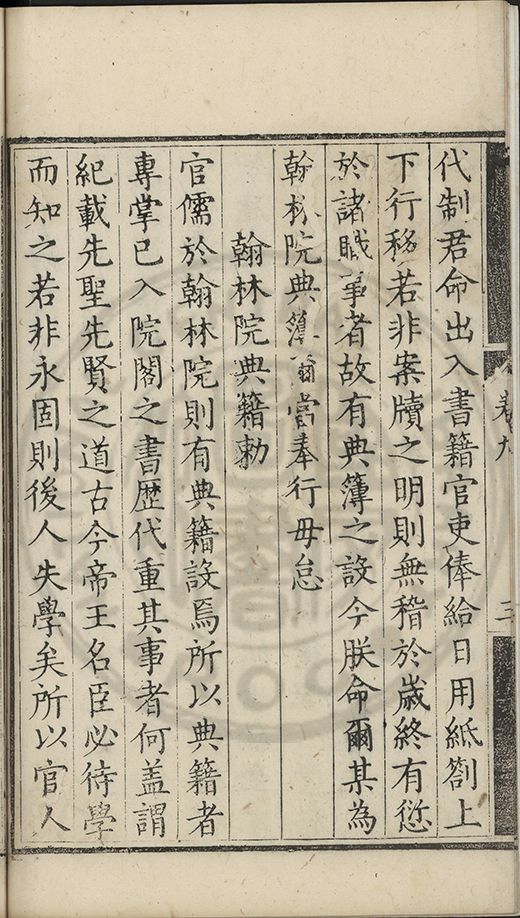 代制君命出入書籍官吏俸給日用紙劄上
下行移若非案牘之明則無稽於歳終有愆
於諸職事者故有典簿之設今朕命爾某為
翰林院典簿爾當奉行毋怠
翰林院典籍勅
官儒於翰林院則有典籍設焉所以典籍者
專掌已入院閣之書歴代重其事者何盖謂
紀載先聖先賢之道古今帝王名臣必待學
而知之若非永固則後人失學矣所以官人
卷九
三